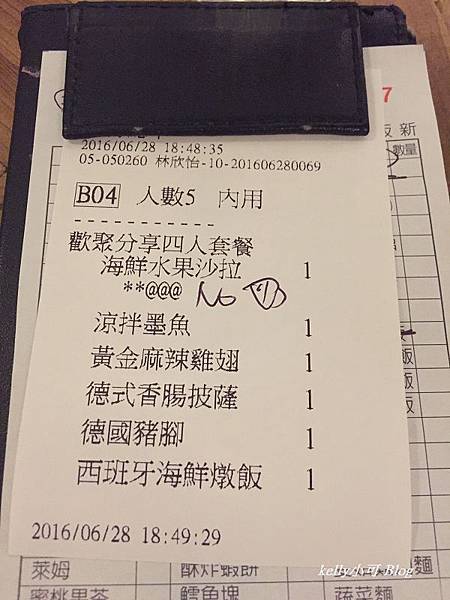 7
板 新
數量
2016/06/28 18:48:35
05-050260 林欣怡-10-201606280069
B04 人數5 內用
-----------
歡聚分享四人套餐
海鮮水果沙拉 1
**@@@ No
涼拌墨魚 1
黃金麻辣雞翅 1
德式香腸披薩 1
德國豬腳 1
西班牙海鮮燉飯 1
飯
飯
飯
2016/06/28 18:49:29
kelly小可 Blog
萊姆 酥炸蝦餅 麵
蜜桃果茶 鱈魚塊 蔬菜麵